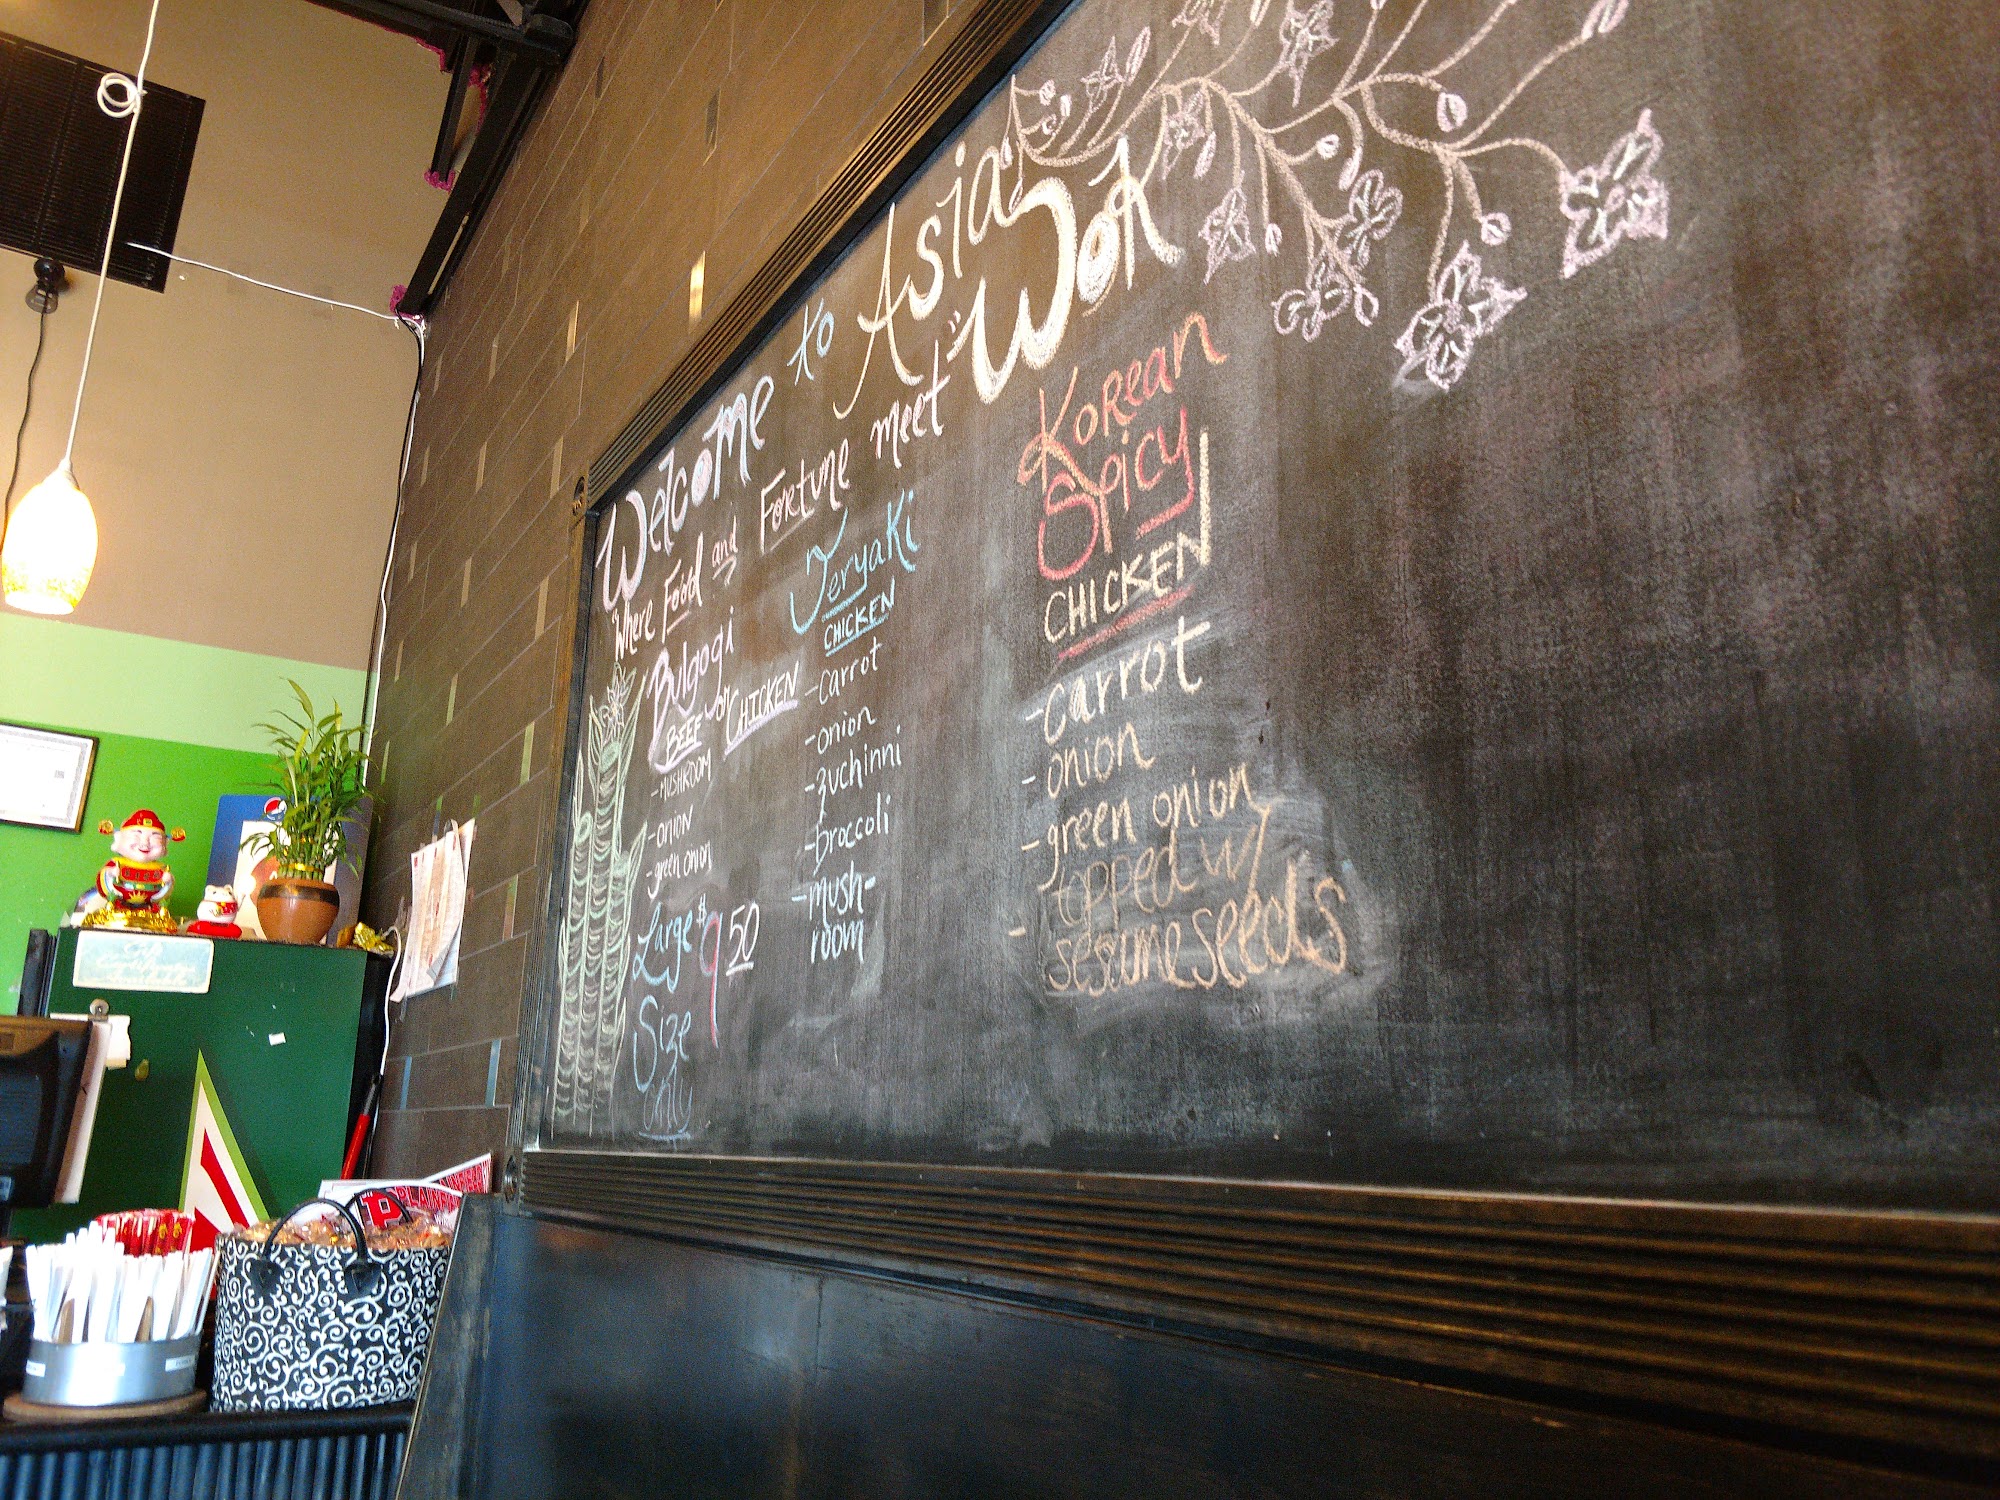 Welcome to Asia Wok
"Where Food and Fortune meet"
Bulgogi
BEEF or CHICKEN
-MUSHROOM
-onion
-green onion
Large $9.50
Size
only
Teryaki
CHICKEN
-carrot
-onion
-zuchinni
-broccoli
-mush-
room
Korean
Spicy
CHICKEN
-carrot
-onion
-green onion
- topped w/
sesame seeds
P